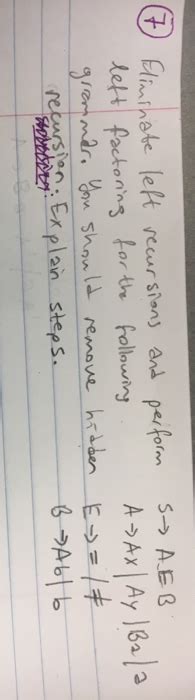 7 Eliminate left recursions and perform
left factoring for the following
grammar. You should remove hidden
recursion. Explain steps.
S → AEB
A → Ax | Ay | Ba | a
E → = | ≠
B → Ab | b